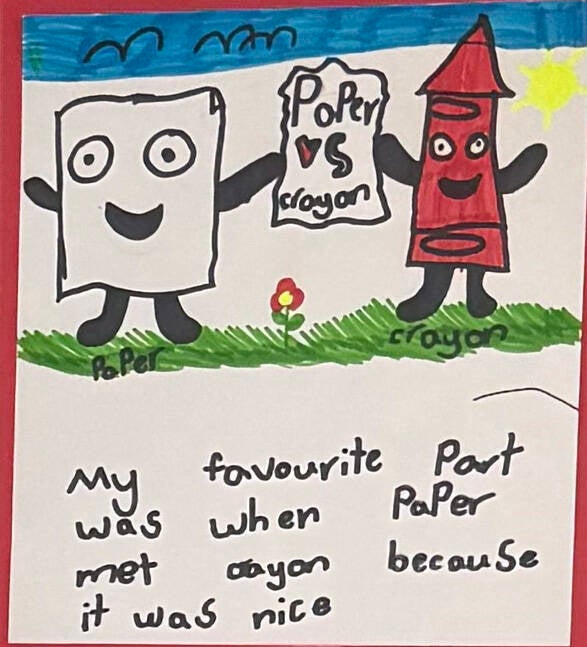 PaPer
vs
crayon
PaPer
crayon
My favourite Part
was when PaPer
met crayon because
it was nice